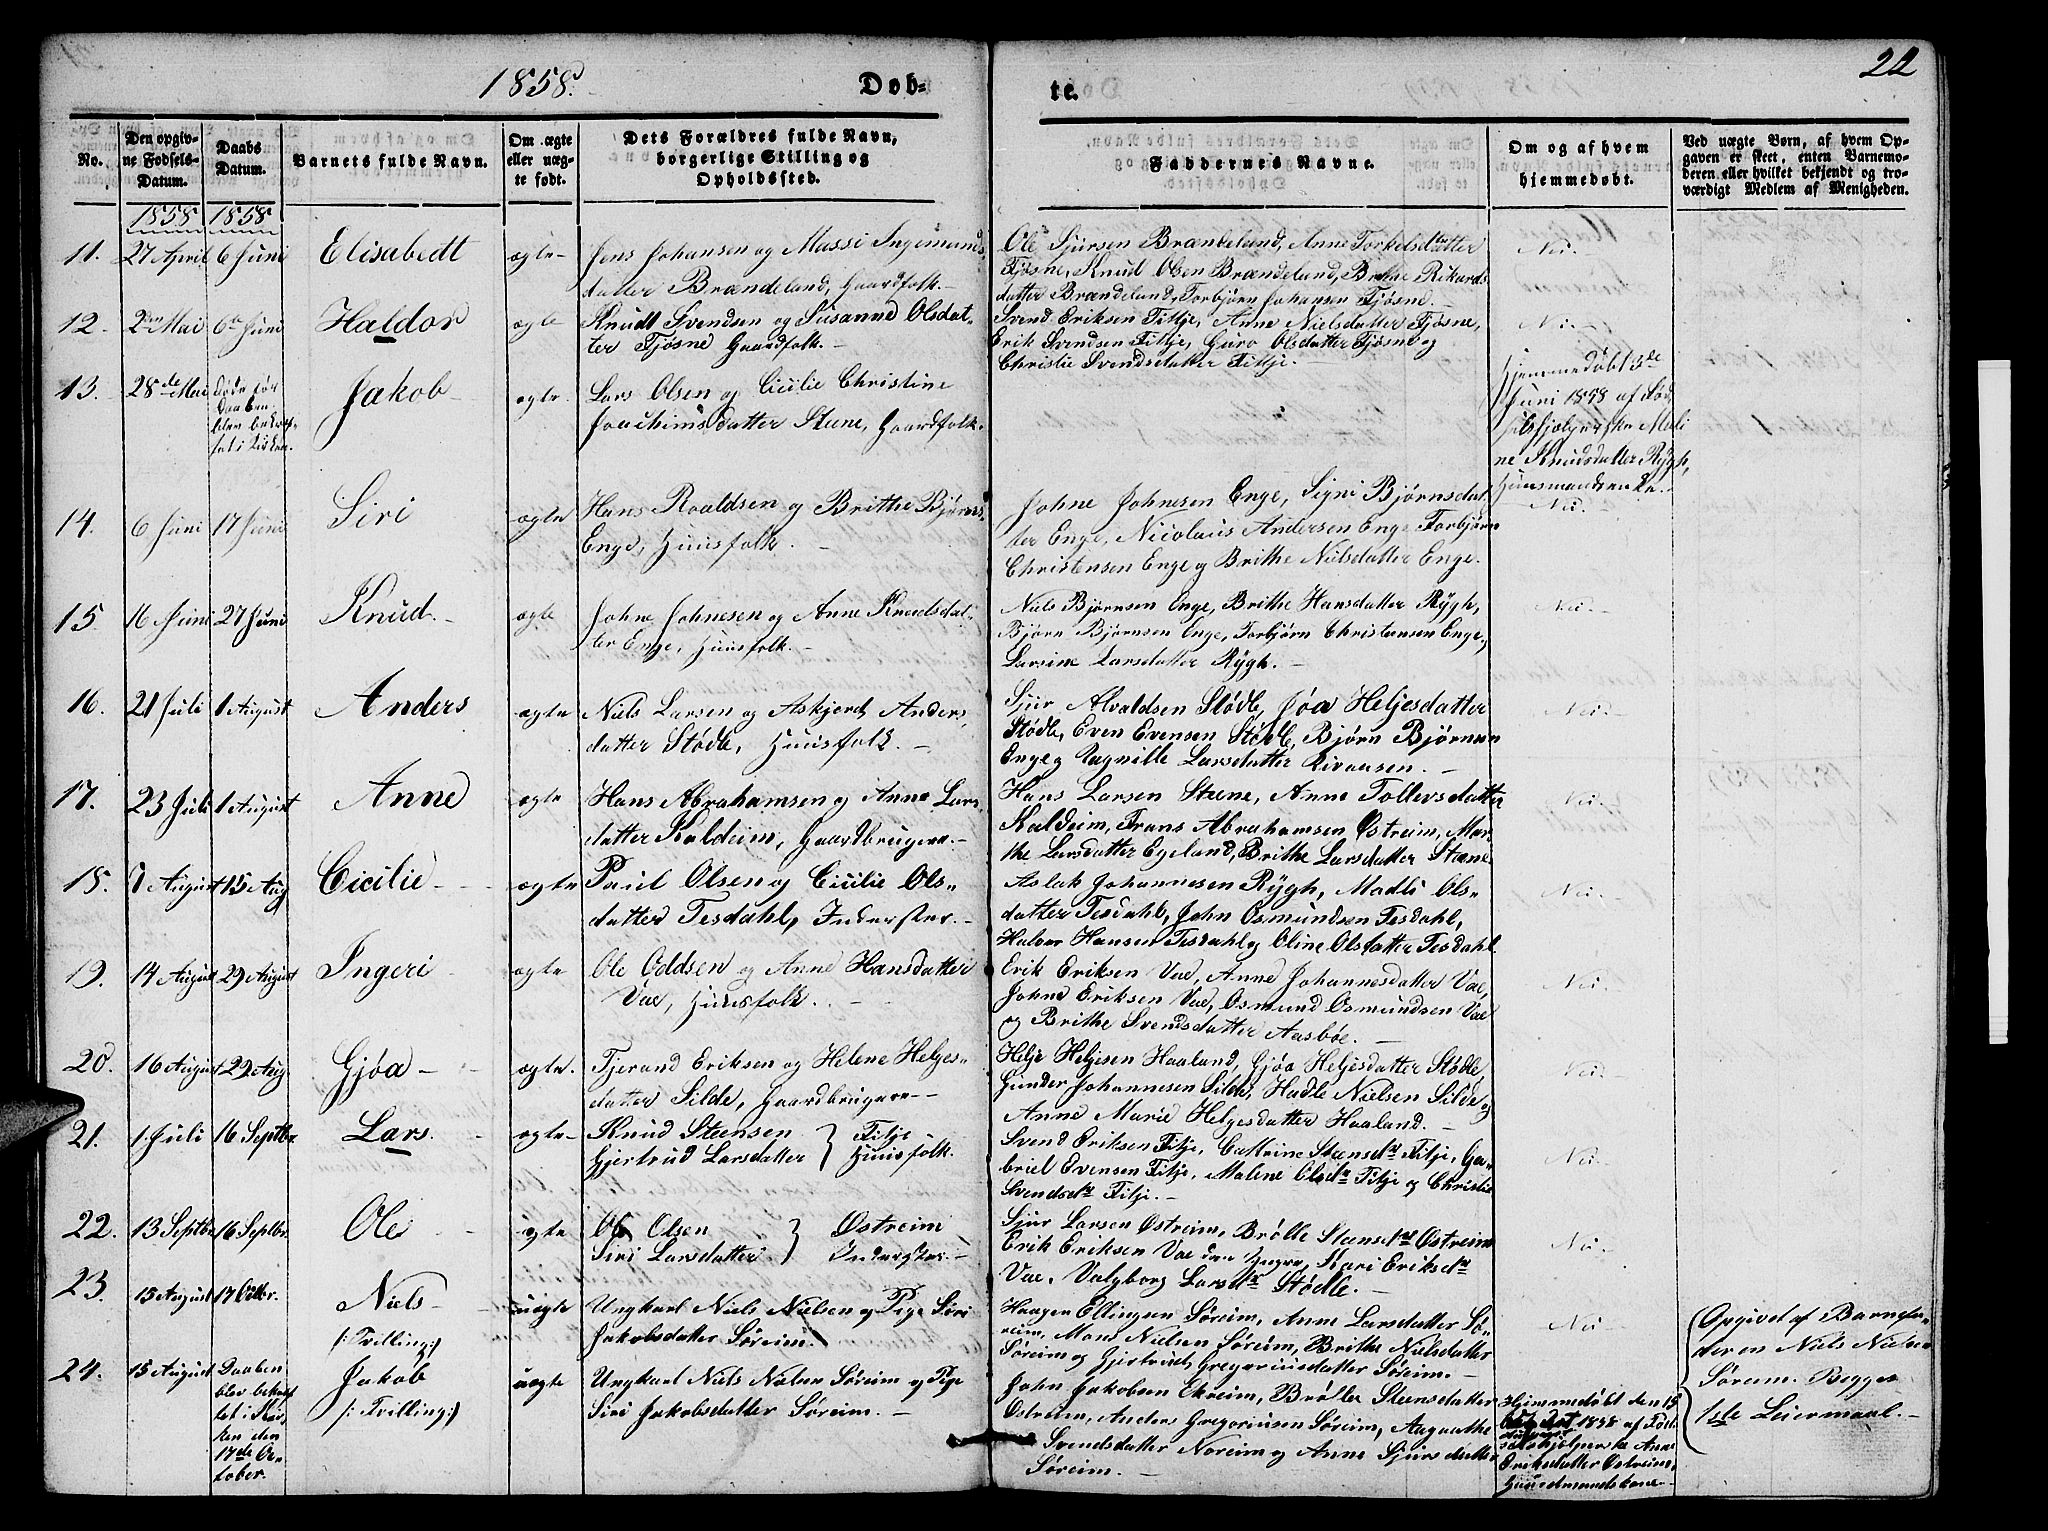 1858.
Døb-
te.
22
No.
Den opgiv-
ne Fødsels-
Datum.
Daabs
Datum.
Barnets fulde Navn.
Om ægte
eller uæg-
te født.
Dets Forældres fulde Navn,
borgerlige Stilling og
Opholdssted.
Faddernes Navne.
Om og af hvem
hjemmedøbt.
Ved uægte Børn, af hvem Op-
gaven er skeet, enten Barnemo-
deren eller hvilket bekjendt og tro-
værdigt Medlem af Menigheden.
1858 1858
11. 27 April 6 Juni Elisabedt ægte-
Jens Johansen og Massi Ingemunds-
datter Brændeland, Gaardfolk.-
Ole Sjursen Brændeland, Anne Torkelsdatter
Tjøsne, Knud Olsen Brændeland, Brithe Rikards-
datter Brændeland, Torbjørn Johansen Tjøsne.-
Nei.-
12. 2den Mai 6te Juni Haldor ægte
Knudt Svendsen og Susanne Olsdat-
ter Tjøsne Gaardfolk.-
Svend Eriksen Fittje, Anne Nielsdatter Tjøsne,
Erik Svendsen Fittje, Guro Olsdatter Tjøsne og
Christie Svendsdatter Fittje.-
Nei.-
13. 28de Mai
døde før
Daaben
blev bekræf-
tet i Kirken.
Jakob- ægte.
Lars Olsen og Cicilie Christine
Joachimsdatter Steene, Gaardfolk.
Hjemmedøbt 3de
Juni 1858 af Fød-
selshjelperske Mali-
ne Knudsdatter Rygh,
Huusmandsenke.-
14. 6 Juni 17 Juni Siri ægte
Hans Roaldsen og Brithe Bjørns-
Enge, Huusfolk.-
Johne Johnesen Enge, Signi Bjørnsdat-
ter Enge, Nicolaus Andersen Enge Torbjørn
Christensen Enge og Brithe Nielsdatter Enge.
Nei.
15. 16 Juni 27 Juni Knud.- ægte
Johne Johnesen og Anne Knudsdat-
ter Enge, Huusfolk.-
Niels Bjørnsen Enge, Brithe Hansdatter Rygh,
Bjørn Bjørnsen Enge, Torbjørn Christensen Enge,
Larsine Larsdatter Rygh.-
Nei.
16. 21 Juli 1 August Anders ægte
Niels Larsen og Askjerd Anders-
datter Stødle, Huusfolk.-
Sjur Alvaldsen Stødle, Jøa Heljesdatter
Stødle, Even Evensen Stødle, Bjørn Bjørnsen
Enge og Ragnille Larsdatter.-
Nei.-
17. 23 Juli 1 August Anne ægte
Hans Abrahamsen og Anne Lars-
datter Kaldeim, Gaardbrugere.-
Hans Larsen Steene, Anne Tollevsdatter
Kaldeim, Frans Abrahamsen Østreim, Mar-
the Larsdatter Egeland, Brithe Larsdatter Steene
Nei.
18. August 15 Aug Cicilie- ægte
Paul Olsen og Cicilie Ols-
datter Tesdahl, Inderster.-
Aslak Johannesen Rygh, Madli Ols-
datter Tesdahl, John Osmundsen Tesdahl,
Halvor Hansen Tesdahl og Oline Olsdatter Tesdahl.
Nei.-
19. 14 August 29 August Ingeri ægte
Ole Oddsen og Anne Hansdatter
Vae, Huusfolk.-
Erik Eriksen Vae, Anne Johannesdatter Vae,
Johne Eriksen Vae, Osmund Osmundsen Vae
og Brithe Svendsdatter Aasbøe.-
Nei.
20. 16 August 29 Aug. Gjøa- ægte.
Tjerand Eriksen og Helene Helges-
datter Silde, Gaardbrugere.-
Helje Heljesen Haaland, Gjøa Heljesdatter Stødle
Gunder Johannesen Silde, Hadle Nielsen Silde og
Anne Marie Helgesdatter Haaland.-
Nei.
21. 1 Juli 16 Septbr. Lars. ægte-
Knud Steensen } Fitje
Gjertrud Larsdatter } Huusfolk.
Svend Eriksen Fitje, Cattrine Steensdtr Fitje, Ga-
briel Evensen Fitje, Malene Olsdtr Fitje og Christie
Svendsdtr Fitje.-
Nei.
22. 13 Septbr. 16 Septbr. Ole ægte
Ole Olsen } Østreim
Siri Larsdatter } Inderster.-
Sjur Larsen Østreim, Brølle Steensdtr Østreim
Erik Eriksen Vae den Yngre, Kari Eriksdtr
Vae, Valgborg Larsdtr Stødle.-
Nei.
23. 15 August 17 Octbr. Niels-
/: Tvilling:/
uægte
Ungkarl Niels Nielsen og Pige Siri
Jakobsdatter Søreim.
Haagen Ellingsen Søreim, Anne Larsdatter Sø-
reim, Mons Nielsen Søreim, Brithe Nielsdatter
Søreim og Gjertrud Gregoriusdatter Søreim.
Nei
{ Opgivet af Barnefa-
deren Niels Nielsen
Søreim. Begges
1ste Leiermaal.-
24. 15 August
Daaben
blev bekræf-
tet i Kir-
ken den
17de Oc-
tober.
Jakob
/: Tvilling:/
uægte
Ungkarl Niels Nielsen Søreim og Pige
Siri Jakobsdatter Søreim.-
John Jakobsen Ekreim, Brølle Steensdatter
Østreim, Anders Gregoriusen Søreim, Aagaathe
Svendsdatter Noreim og Anne Sjursdatter
Søreim.-
Hjemmedøbt den 15
August 1858 af Fød-
selshjelperske Anne
Eriksdatter Østreim,
Huusmandskone-